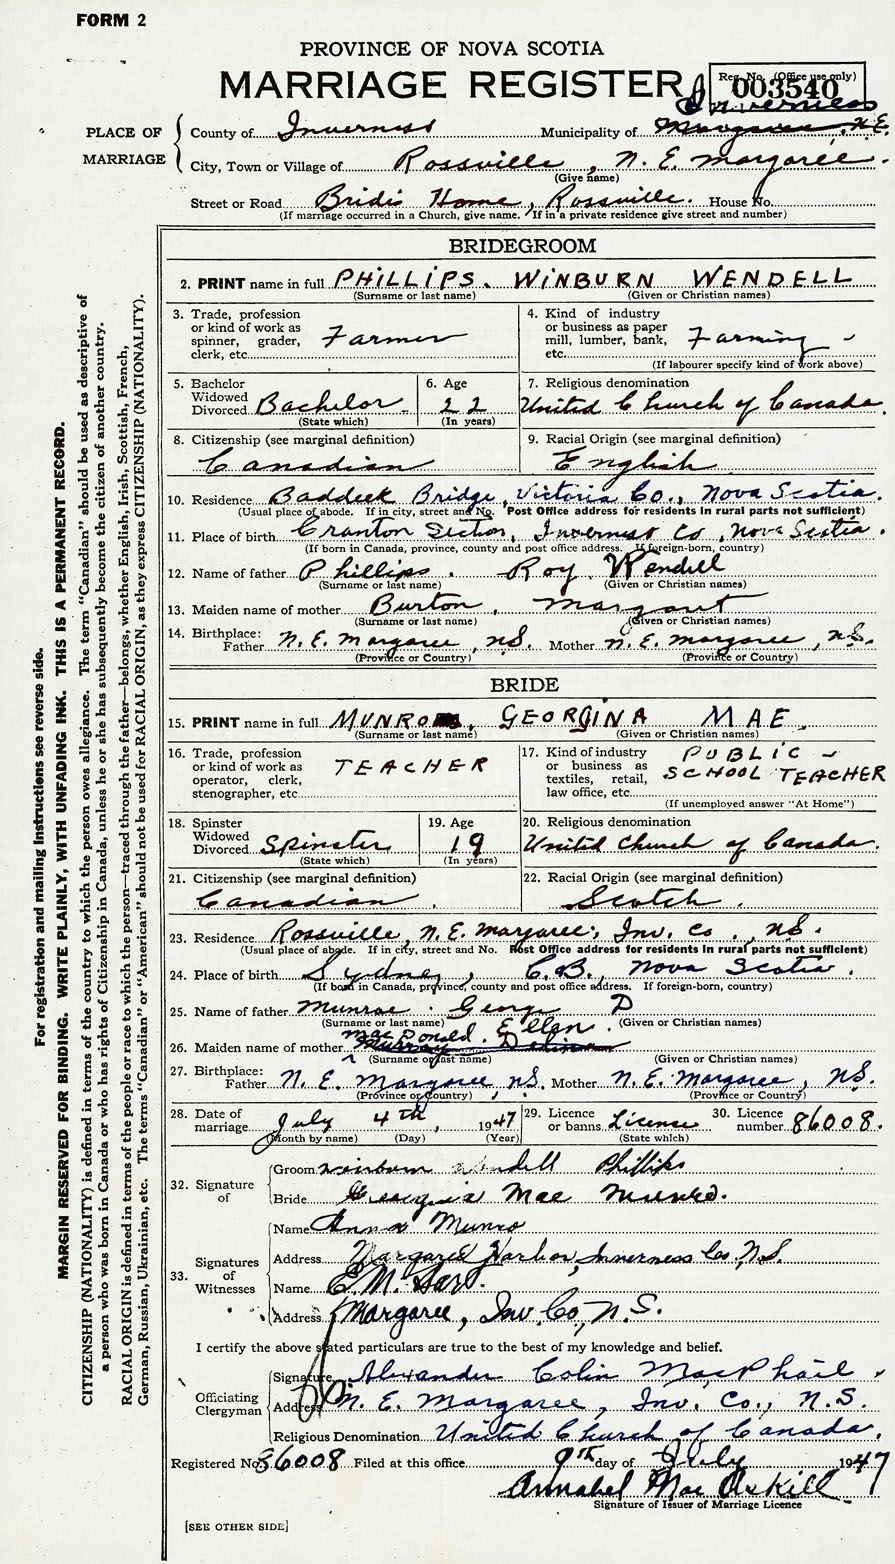 FORM 2
PROVINCE OF NOVA SCOTIA
MARRIAGE REGISTER
Reg. No. (Office use only)
003540
Inverness
PLACE OF MARRIAGE
County of Inverness Municipality of Margaree, N.E.
City, Town or Village of Rossville, N. E. Margaree.
(Give name)
Street or Road Brides Home, Rossville. House No.
(If marriage occurred in a Church, give name. If in a private residence give street and number)
BRIDEGROOM
2. PRINT name in full PHILLIPS. WINBURN WENDELL
(Surname or last name) (Given or Christian names)
3. Trade, profession or kind of work as spinner, grader, clerk, etc. Farmer
4. Kind of industry or business as paper mill, lumber, bank, etc. Farming
(If labourer specify kind of work above)
5. Bachelor Widowed Divorced Bachelor
(State which)
6. Age 22
(In years)
7. Religious denomination
United Church of Canada.
8. Citizenship (see marginal definition)
Canadian
9. Racial Origin (see marginal definition)
English
10. Residence Baddeck Bridge, Victoria Co., Nova Scotia.
(Usual place of abode. If in city, street and No. Post Office address for residents in rural parts not sufficient)
11. Place of birth Cranton Section, Inverness Co, Nova Scotia.
(If born in Canada, province, county and post office address. If foreign-born, country)
12. Name of father Phillips. Roy Wendell
(Surname or last name) (Given or Christian names)
13. Maiden name of mother Burton, Margaret
(Surname or last name) (Given or Christian names)
14. Birthplace: Father N. E. Margaree, N.S. Mother N. E. Margaree, N.S.
(Province or Country) (Province or Country)
BRIDE
15. PRINT name in full MUNRO, GEORGINA MAE
(Surname or last name) (Given or Christian names)
16. Trade, profession or kind of work as operator, clerk, stenographer, etc. TEACHER
17. Kind of industry or business as textiles, retail, law office, etc. PUBLIC - SCHOOL TEACHER
(If unemployed answer "At Home")
18. Spinster Widowed Divorced Spinster
(State which)
19. Age 19
(In years)
20. Religious denomination
United Church of Canada.
21. Citizenship (see marginal definition)
Canadian.
22. Racial Origin (see marginal definition)
Scotch.
23. Residence Rossville, N. E. Margaree, Inv. Co., N.S.
(Usual place of abode. If in city, street and No. Post Office address for residents in rural parts not sufficient)
24. Place of birth Sydney, C.B., Nova Scotia.
(If born in Canada, province, county and post office address. If foreign-born, country)
25. Name of father Munroe. George D
(Surname or last name) (Given or Christian names)
MacDonald. Ellen.
26. Maiden name of mother Murray
(Surname or last name) (Given or Christian names)
27. Birthplace: Father N. E. Margaree, N.S. Mother N. E. Margaree, N.S.
(Province or Country) (Province or Country)
28. Date of marriage July 4th, 1947
(Month by name) (Day) (Year)
29. Licence or banns Licence
(State which)
30. Licence number 86008.
32. Signature of
Groom Winburn Wendell Phillips
Bride Georgina Mae Munro.
33. Signatures of Witnesses
Name Anna Munro
Address Margaree Harbor, Inverness Co., N.S.
Name E. M.
Address Margaree, Inv. Co., N.S.
I certify the above stated particulars are true to the best of my knowledge and belief.
Officiating Clergyman
Signature Alexander Colin MacPhail
Address N. E. Margaree, Inv. Co., N.S.
Religious Denomination United Church of Canada.
Registered No. 86008 Filed at this office 9th day of July 1947
Annabel MacAskill
Signature of Issuer of Marriage Licence
[SEE OTHER SIDE]
For registration and mailing instructions see reverse side.
MARGIN RESERVED FOR BINDING. WRITE PLAINLY, WITH UNFADING INK. THIS IS A PERMANENT RECORD.
CITIZENSHIP (NATIONALITY) is defined in terms of the country to which the person owes allegiance. The term "Canadian" should be used as descriptive of
a person who was born in Canada or who has rights of Citizenship in Canada, unless he or she has subsequently become the citizen of another country.
RACIAL ORIGIN is defined in terms of the people or race to which the person—traced through the father—belongs, whether English, Irish, Scottish, French,
German, Russian, Ukrainian, etc. The terms "Canadian" or "American" should not be used for RACIAL ORIGIN, as they express CITIZENSHIP (NATIONALITY).